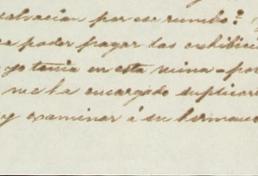 salvacion por ese rumbo?
para poder pagar las exhibicio
yo tenia en esta mina - por
me ha encargado suplicar
y examinar á su hermano